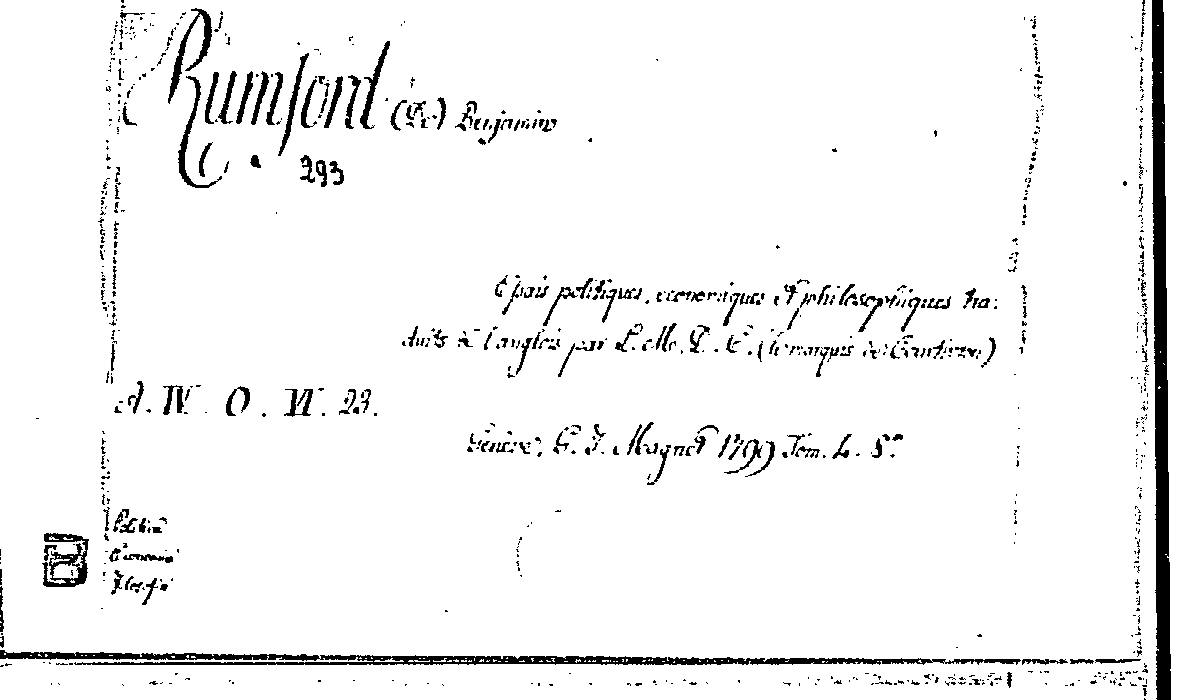 Rumford (De) Benjamin
293
Essais politiques, economiques et philosophiques tra:
duits de l'anglois par L. M. D. C. (le marquis de Courtivron)
A. IV. O. VI. 23.
Genève, G. J. Manget 1799 Tom. 4. 8°
Politica
Economia
Filosofia
B